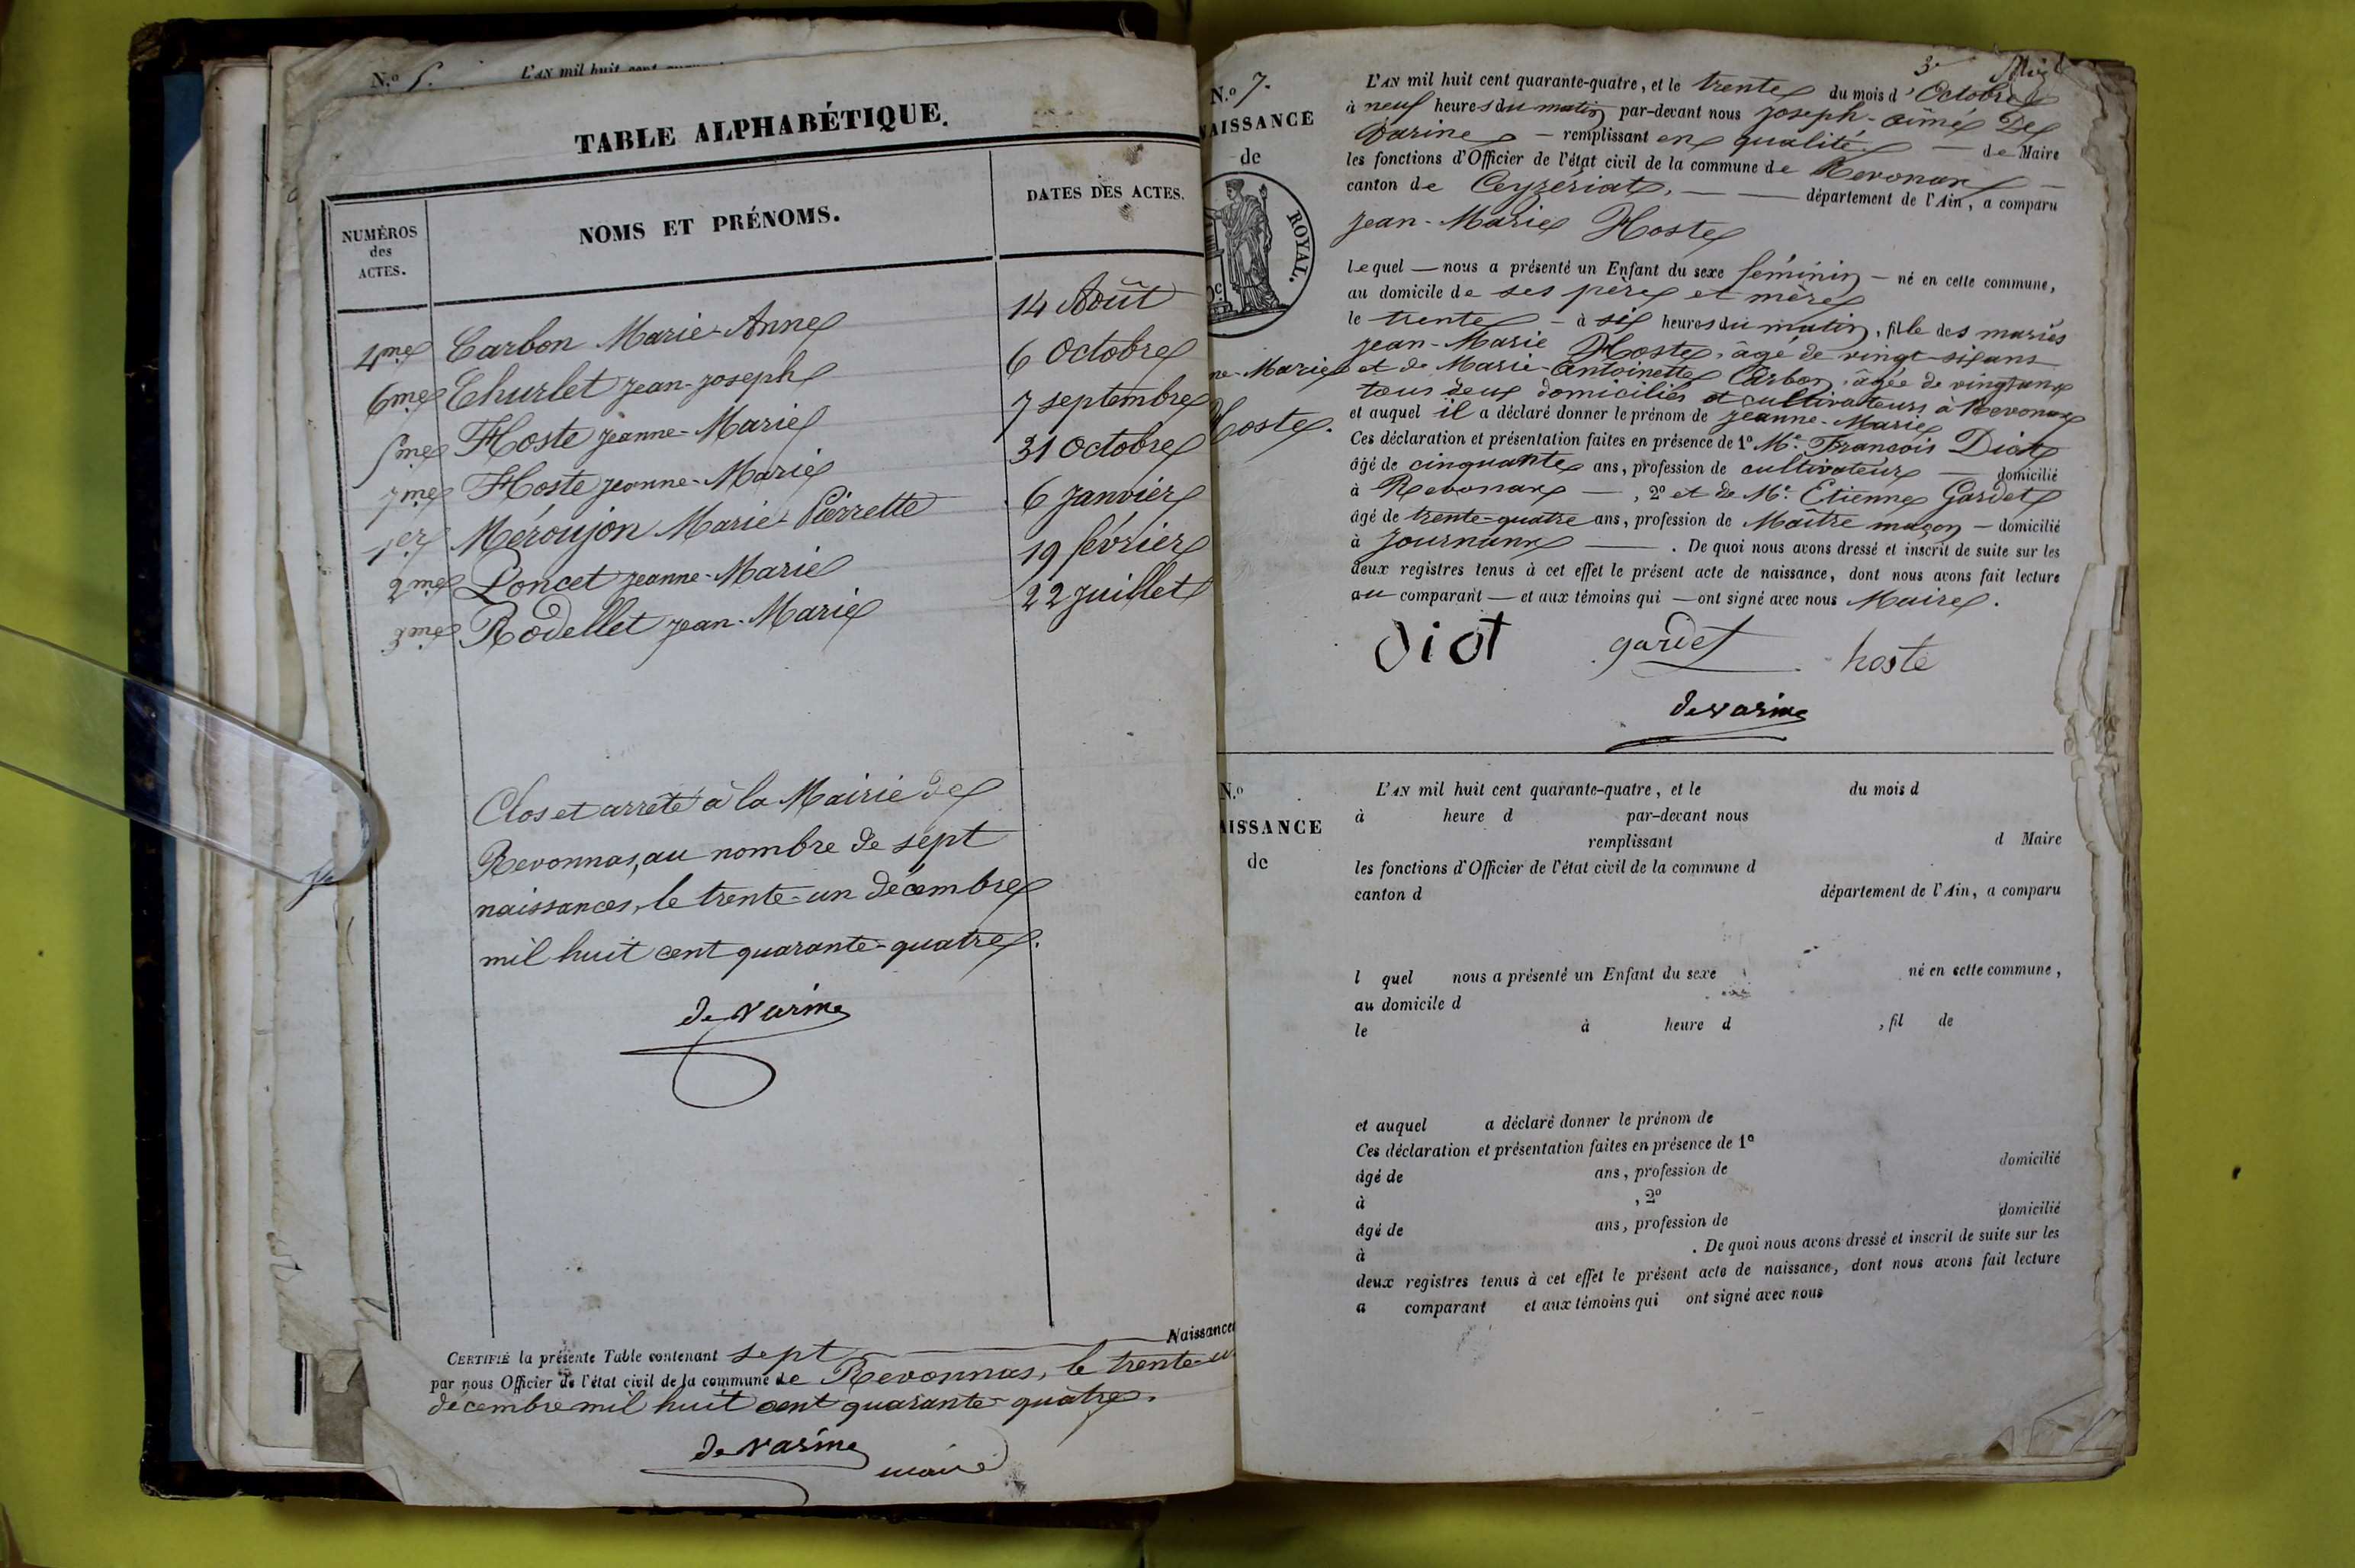 N.o 5.
L'AN mil huit cent
TABLE ALPHABÉTIQUE.
NUMÉROS des ACTES.
NOMS ET PRÉNOMS.
DATES DES ACTES.
4me Carbon Marie-Anne 14 Août
6me Churlet jean-joseph 6 Octobre
5me Hoste jeanne-Marie 7 septembre
7me Hoste jeanne-Marie 31 Octobre
1er Méroujon Marie-Pierrette 6 janvier
2me Poncet jeanne-Marie 19 février
3me Rodellet jean-Marie 22 juillet
Clos et arrêté à la Mairie de
Revonnas, au nombre de sept
naissances, le trente-un décembre
mil huit cent quarante-quatre.
de varine
Naissances
CERTIFIÉ la présente Table contenant sept
par nous Officier de l'état civil de la commune de Revonnas, le trente-un
décembre mil huit cent quarante-quatre.
de varine
maire
N.o 7.
NAISSANCE
de
ROYAL.
ne-Marie
Hoste.
L'AN mil huit cent quarante-quatre, et le trente du mois d'Octobre
à neuf heures du matin par-devant nous joseph-aimé De
Varine remplissant en qualité de Maire
les fonctions d'Officier de l'état civil de la commune de Revonnas
canton de Ceyzériat, département de l'Ain, a comparu
jean-Marie Hoste
lequel nous a présenté un Enfant du sexe féminin né en cette commune,
au domicile de ses père et mère
le trente à six heures du matin, fille des mariés
jean-Marie Hoste, âgé de vingt-six ans
et de Marie-Antoinette Carbon, âgée de vingt ans
tous deux domiciliés et cultivateurs à Revonnas
et auquel il a déclaré donner le prénom de jeanne-Marie
Ces déclaration et présentation faites en présence de 1o Mr. François Diot
âgé de cinquante ans, profession de cultivateur domicilié
à Revonnas, 2o et de Mr. Etienne Gardet
âgé de trente-quatre ans, profession de Maître maçon domicilié
à journans. De quoi nous avons dressé et inscrit de suite sur les
deux registres tenus à cet effet le présent acte de naissance, dont nous avons fait lecture
au comparant et aux témoins qui ont signé avec nous Maire.
diot gardet hoste
devarine
N.o
NAISSANCE
de
L'AN mil huit cent quarante-quatre, et le du mois d
à heure d par-devant nous
remplissant d Maire
les fonctions d'Officier de l'état civil de la commune d
canton d département de l'Ain, a comparu
l quel nous a présenté un Enfant du sexe né en cette commune,
au domicile d
le à heure d , fil de
et auquel a déclaré donner le prénom de
Ces déclaration et présentation faites en présence de 1o
âgé de ans, profession de domicilié
à , 2o
âgé de ans, profession de domicilié
à . De quoi nous avons dressé et inscrit de suite sur les
deux registres tenus à cet effet le présent acte de naissance, dont nous avons fait lecture
a comparant et aux témoins qui ont signé avec nous